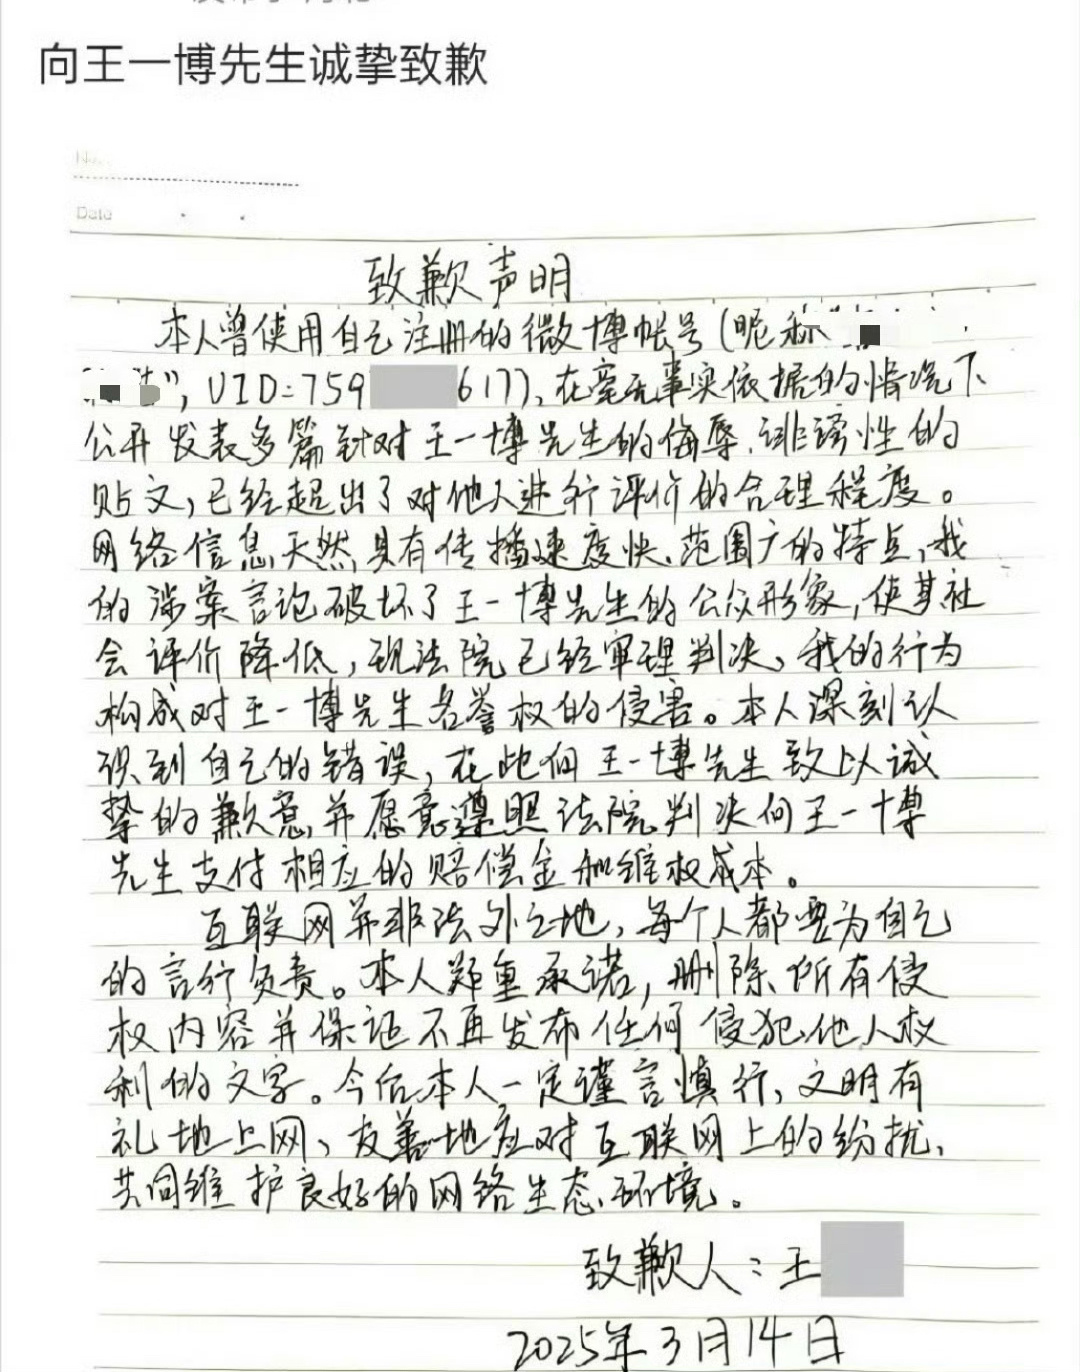 向王一博先生诚挚致歉
No.
Date
致歉声明
本人曾使用自己注册的微博帐号(昵称"
", UID=759 617), 在毫无事实依据的情况下
公开发表多篇针对王一博先生的侮辱、诽谤性的
贴文,已经超出了对他人进行评价的合理程度。
网络信息天然具有传播速度快、范围广的特点,我
的涉案言论破坏了王一博先生的公众形象,使其社
会评价降低,现法院已经审理判决,我的行为
构成对王一博先生名誉权的侵害。本人深刻认
识到自己的错误,在此向王一博先生致以诚
挚的歉意,并愿意遵照法院判决向王一博
先生支付相应的赔偿金和维权成本。
互联网并非法外之地,每个人都要为自己
的言行负责。本人郑重承诺,删除所有侵
权内容并保证不再发布任何侵犯他人权
利的文字。今后本人一定谨言慎行,文明有
礼地上网、友善地应对互联网上的纷扰,
共同维护良好的网络生态环境。
致歉人:王
2025年3月14日